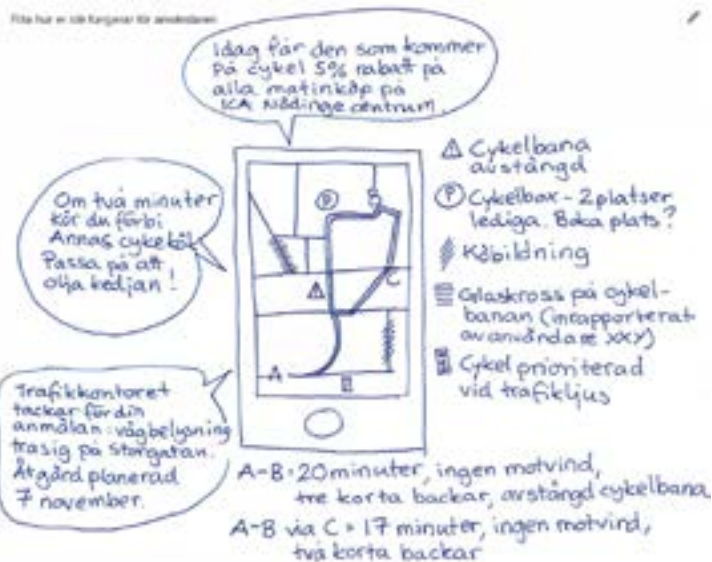 Rita hur er idé fungerar för användaren
Idag får den som kommer
på cykel 5% rabatt på
alla matinköp på
ICA Nödinge centrum.
Om två minuter
kör du förbi
Annas cykelkök
Passa på att
olja kedjan!
Trafikkontoret
tackar för din
anmälan: vägbelysning
trasig på Storgatan.
Åtgärd planerad
7 november.
P
C
A
Cykelbana
avstängd
P Cykelbox - 2 platser
lediga. Boka plats?
Köbildning
Glaskross på cykel-
banan (inrapporterat
av användare XXY)
Cykel prioriterad
vid trafikljus
A-B = 20 minuter, ingen motvind,
tre korta backar, avstängd cykelbana
A-B via C = 17 minuter, ingen motvind,
två korta backar